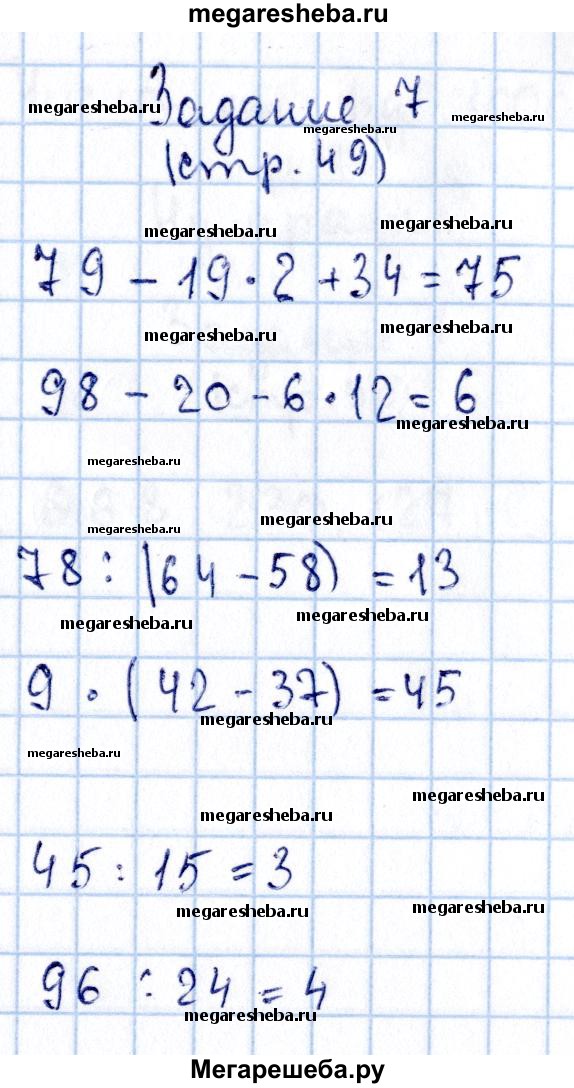 megaresheba.ru
Задание 7
megaresheba.ru
megaresheba.ru
megaresheba.ru
(стр. 49)
megaresheba.ru
megaresheba.ru
79 - 19 · 2 + 34 = 75
megaresheba.ru
megaresheba.ru
98 - 20 - 6 · 12 = 6
megaresheba.ru
megaresheba.ru
megaresheba.ru
megaresheba.ru
78 : (64 - 58) = 13
megaresheba.ru
megaresheba.ru
9 · (42 - 37) = 45
megaresheba.ru
megaresheba.ru
megaresheba.ru
megaresheba.ru
45 : 15 = 3
megaresheba.ru
megaresheba.ru
96 : 24 = 4
megaresheba.ru
megaresheba.ru
Мегарешеба.ру